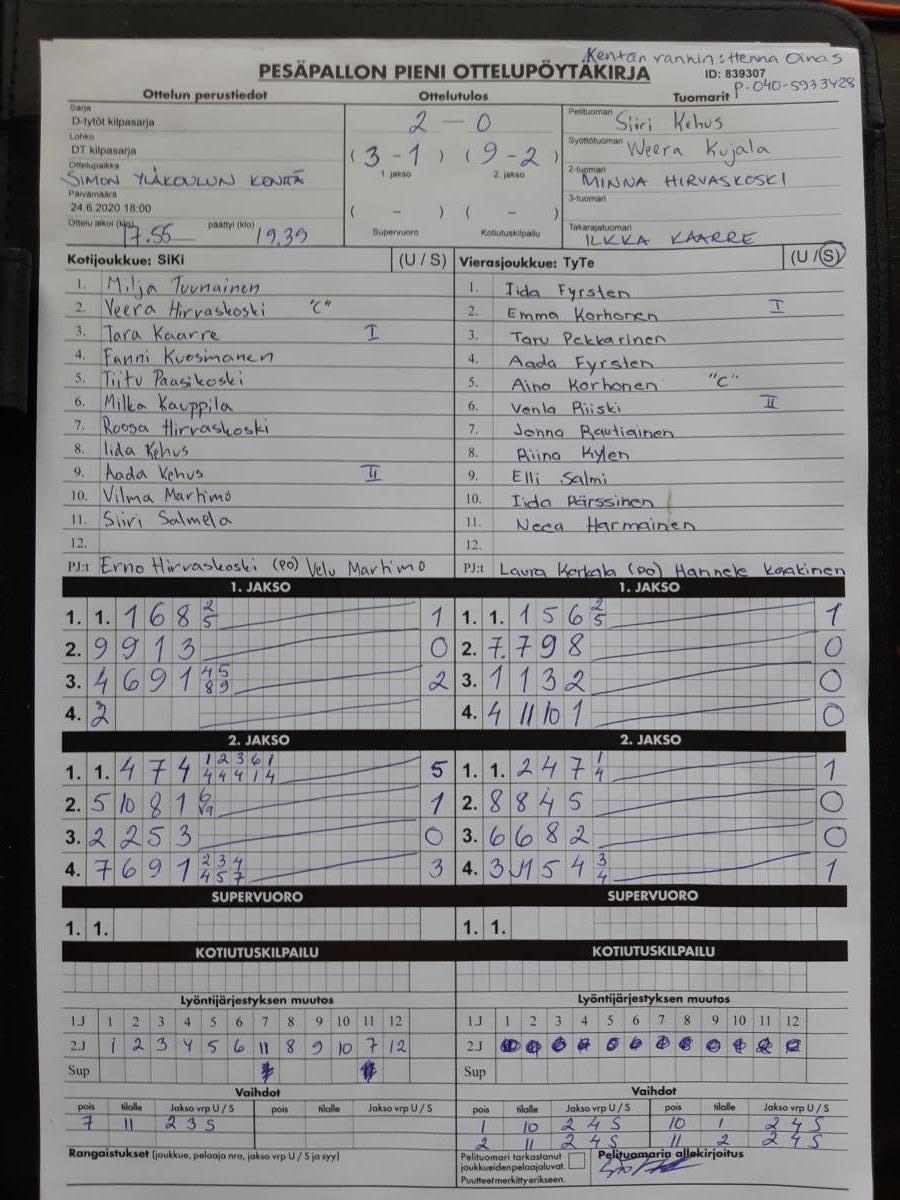 Kentän rankin: Henna Oinas
PESÄPALLON PIENI OTTELUPÖYTÄKIRJA ID: 839307
P-040-5933428
Ottelun perustiedot Ottelutulos Tuomarit
Sarja
D-tytöt kilpasarja
Lohko
DT kilpasarja
Ottelupaikka
SIMON YLÄKOULUN KENTÄ
Päivämäärä
24.6.2020 18:00
Ottelu alkoi (klo) 17.55 päättyi (klo) 19.39
2 - 0
(3-1) (9-2)
1. jakso 2. jakso
( - ) ( - )
Supervuoro Kotiutuskilpailu
Pelituomari Siiri Kehus
Syöttötuomari Weera Kujala
2-tuomari MINNA HIRVASKOSKI
3-tuomari
Takarajatuomari ILKKA KAARRE
Kotijoukkue: SiKi (U / S)
1. Milja Tuunainen
2. Veera Hirvaskoski "C"
3. Tara Kaarre I
4. Fanni Kuosmanen
5. Tiitu Paasikoski
6. Milka Kauppila
7. Roosa Hirvaskoski
8. Iida Kehus
9. Aada Kehus II
10. Vilma Martimo
11. Siiri Salmela
12.
PJ:t Erno Hirvaskoski (PO) Velu Martimo
Vierasjoukkue: TyTe (U / S)
1. Iida Fyrsten
2. Emma Korhonen I
3. Taru Pekkarinen
4. Aada Fyrsten
5. Aino Korhonen "C"
6. Venla Riiski II
7. Jonna Rautiainen
8. Riina Kylen
9. Elli Salmi
10. Iida Pärssinen
11. Neea Harmainen
12.
PJ:t Laura Karkala (PO) Hannele Kaakinen
1. JAKSO 1. JAKSO
1. 1. 1 6 8 2/5 1 1. 1. 1 5 6 2/5 1
2. 9 9 1 3 0 2. 7. 7 9 8 0
3. 4 6 9 1 4/8 5/9 2 3. 1 1 3 2 0
4. 2 4. 4 11 10 1 0
2. JAKSO 2. JAKSO
1. 1. 4 7 4 1/4 2/4 3/4 6/1 1/4 5 1. 1. 2 4 7 1/4 1
2. 5 10 8 1 6/va 1 2. 8 8 4 5 0
3. 2 2 5 3 0 3. 6 6 8 2 0
4. 7 6 9 1 2/4 3/5 4/7 3 4. 3 11 5 4 3/4 1
SUPERVUORO SUPERVUORO
1. 1. 1. 1.
KOTIUTUSKILPAILU KOTIUTUSKILPAILU
Lyöntijärjestyksen muutos Lyöntijärjestyksen muutos
1.J 1 2 3 4 5 6 7 8 9 10 11 12 1.J 1 2 3 4 5 6 7 8 9 10 11 12
2.J 1 2 3 4 5 6 11 8 9 10 7 12 2.J
Sup Sup
Vaihdot Vaihdot
pois tilalle Jakso vrp U / S pois tilalle Jakso vrp U / S pois tilalle Jakso vrp U / S pois tilalle Jakso vrp U / S
7 11 2 3 S 1 10 2 4 S 10 1 2 4 S
2 11 2 4 S 11 2 2 4 S
Rangaistukset (joukkue, pelaaja nro, jakso vrp U / S ja syy)
Pelituomari tarkastanut
joukkueidenpelaajaluvat.
Puutteetmerkittyerikseen.
Pelituomarin allekirjoitus